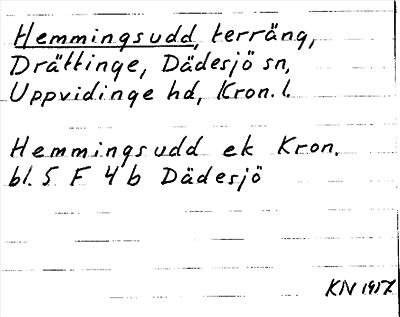 Hemmingsudd, terräng,
Drättinge, Dädesjö sn,
Uppvidinge hd, Kron. l.
Hemmingsudd ek Kron.
bl. 5 F 4 b Dädesjö
KN 1957